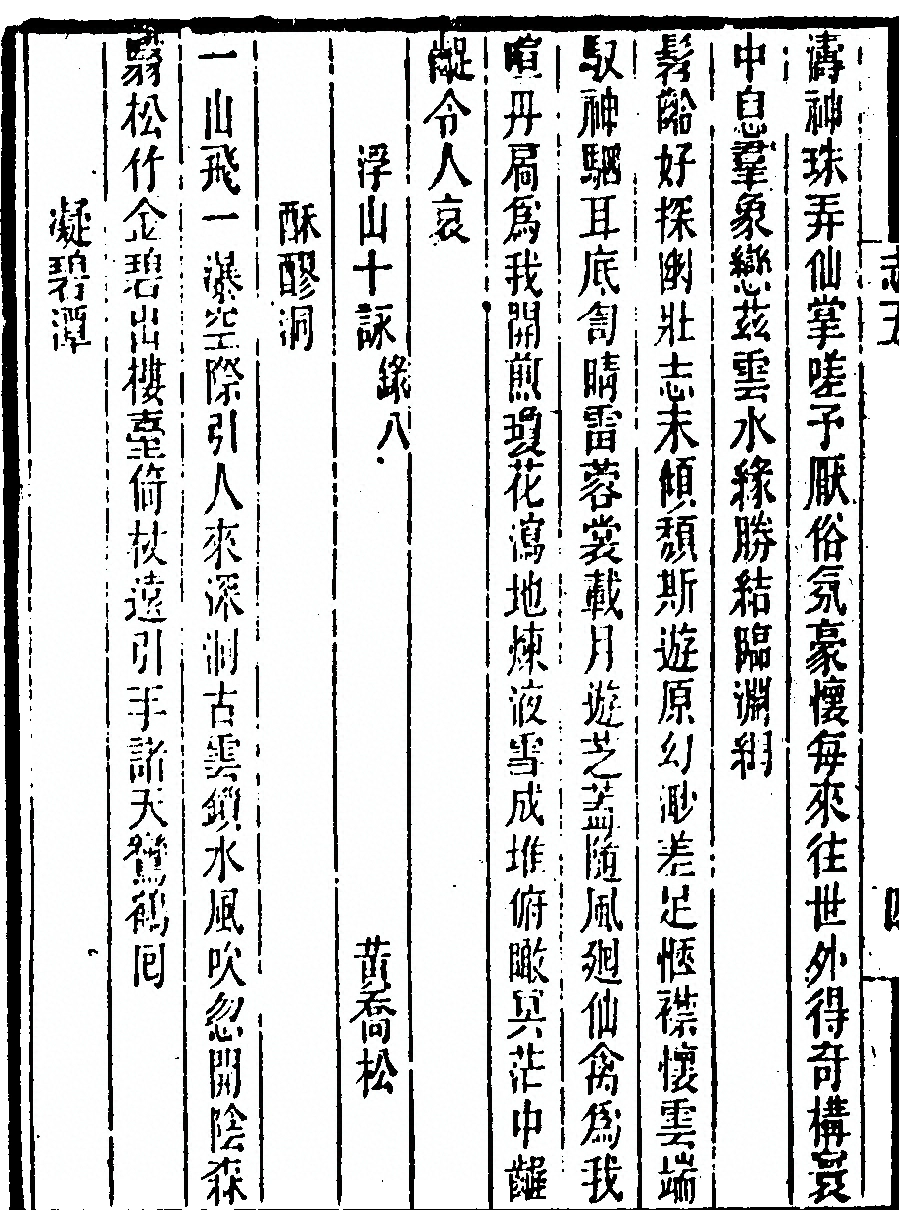 濤神珠弄仙掌嗟予厭俗氛豪懷每來往世外得奇構裒
中息羣象戀茲雲水緣勝結臨淵網
髫齡好探幽壯志未傾頹斯遊原幻渺差足愜襟懷雲端
馭神駟耳底訇晴雷蓉裳載月遊芝蓋隨風廻仙禽爲我
喧丹扃爲我開煎瓊花瀉地煉液雪成堆俯瞰冥茫中齷
齪令人哀
浮山十詠錄八 黃喬松
酥醪洞
一山飛一瀑空際引人來深洞古雲鎖水風吹忽開陰森
翳松竹金碧出樓臺倚杖遠引手諸天鸞鶴囘
凝碧潭
志五
四